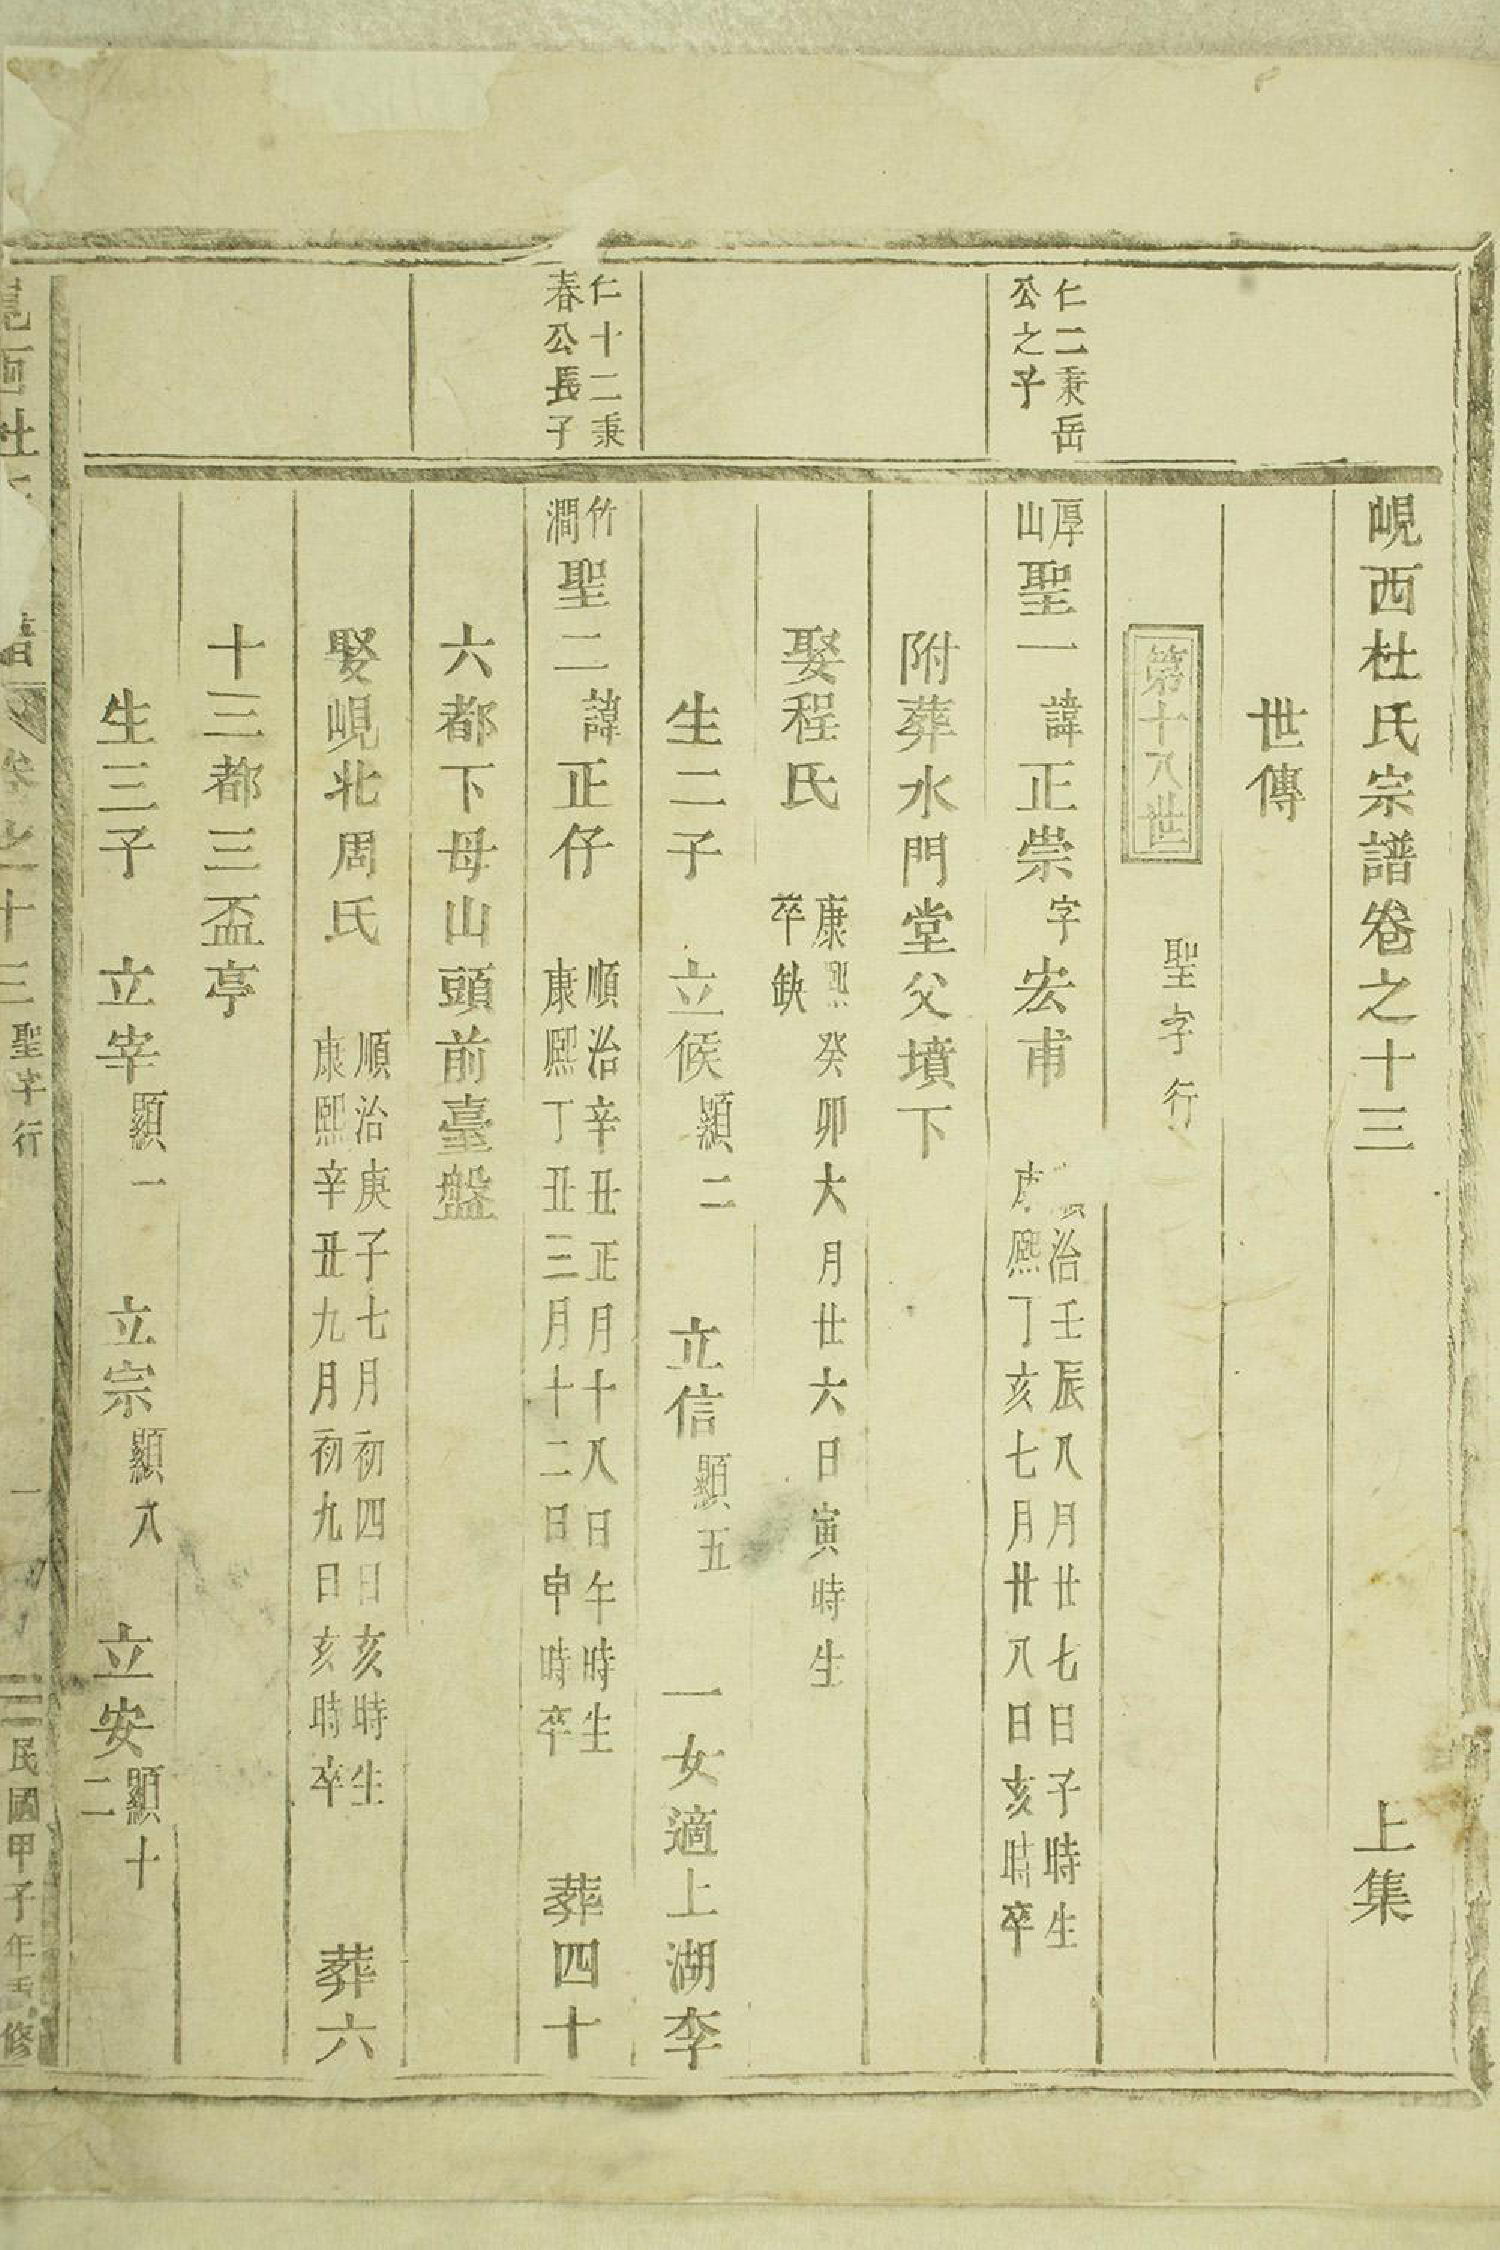 峴西杜氏宗譜卷之十三 上集
世傳
第十八世 聖字行
仁二秉岳
公之子
厚山 聖一 諱正崇字宏甫 順治壬辰八月廿七日子時生
康熙丁亥七月廿八日亥時卒
附葬水門堂父墳下
娶程氏 康熙癸卯六月廿六日寅時生
卒缺
生二子 立候顯二 立信顯五 一女適上湖李
仁十二秉
春公長子
竹澗 聖二 諱正仔 順治辛丑正月十八日午時生
康熙丁丑三月十二日申時卒 葬四十
六都下母山頭前臺盤
娶峴北周氏 順治庚子七月初四日亥時生
康熙辛丑九月初九日亥時卒 葬六
十三都三盃亭
生三子 立宰顯一 立宗顯八 立安顯十二
杜 譜 卷之十三 聖字行 一 民國甲子年重修